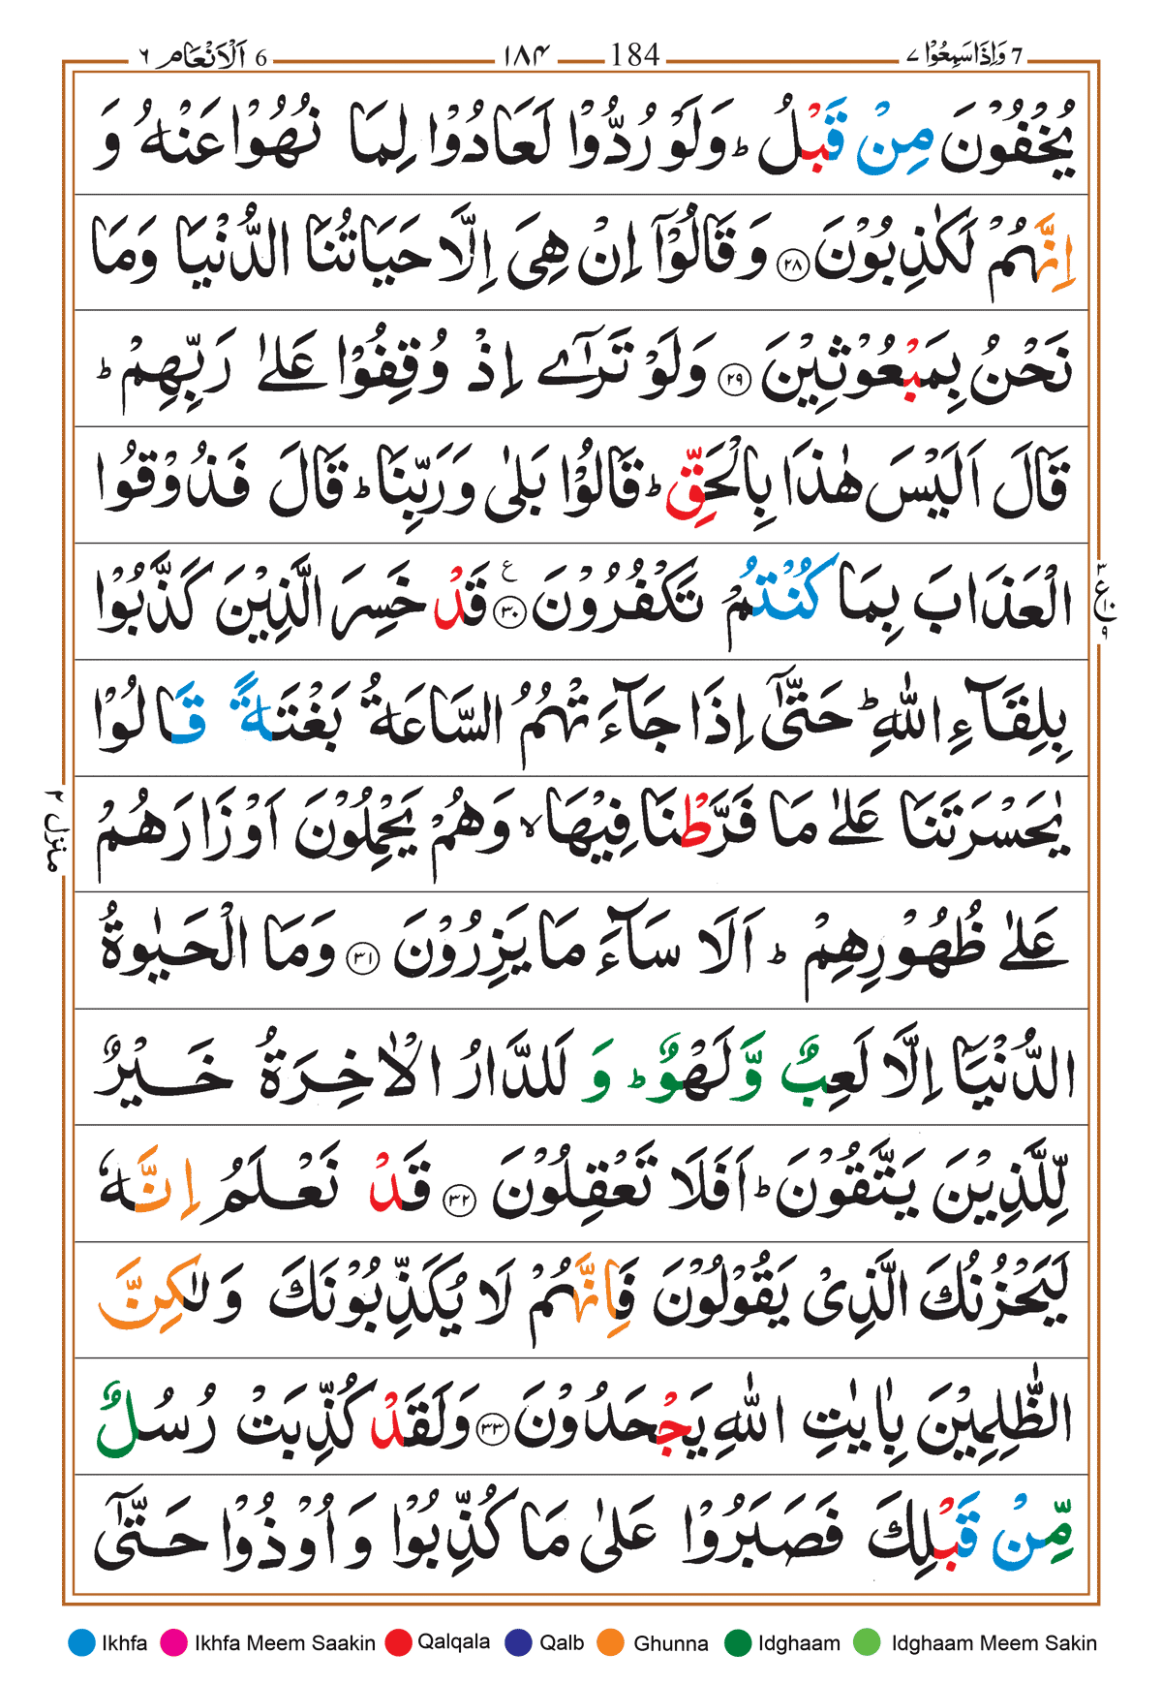 7 وَاِذَا سَمِعُوْا ٧ 184 ١٨٤ 6 اَلْاَنْعَام ٦
يُخْفُوْنَ مِنْ قَبْلُ ؕ وَلَوْ رُدُّوْا لَعَادُوْا لِمَا نُهُوْا عَنْهُ وَ
اِنَّهُمْ لَكٰذِبُوْنَ ﴿۲۸﴾ وَ قَالُوْۤا اِنْ هِیَ اِلَّا حَيَاتُنَا الدُّنْيَا وَمَا
نَحْنُ بِمَبْعُوْثِيْنَ ﴿۲۹﴾ وَلَوْ تَرٰٓے اِذْ وُقِفُوْا عَلٰى رَبِّهِمْ ؕ
قَالَ اَلَيْسَ هٰذَا بِالْحَقِّ ؕ قَالُوْا بَلٰى وَرَبِّنَا ؕ قَالَ فَذُوْقُوا
الْعَذَابَ بِمَا كُنْتُمْ تَكْفُرُوْنَ ﴿۳۰﴾ ع قَدْ خَسِرَ الَّذِيْنَ كَذَّبُوْا
بِلِقَآءِ اللّٰهِ ؕ حَتّٰۤى اِذَا جَآءَتْهُمُ السَّاعَةُ بَغْتَةً قَالُوْا
يٰحَسْرَتَنَا عَلٰى مَا فَرَّطْنَا فِيْهَا ۙ وَهُمْ يَحْمِلُوْنَ اَوْزَارَهُمْ
عَلٰى ظُهُوْرِهِمْ ؕ اَلَا سَآءَ مَا يَزِرُوْنَ ﴿۳۱﴾ وَمَا الْحَيٰوةُ
الدُّنْيَاۤ اِلَّا لَعِبٌ وَّلَهْوٌ ؕ وَ لَلدَّارُ الْاٰخِرَةُ خَيْرٌ
لِّلَّذِيْنَ يَتَّقُوْنَ ؕ اَفَلَا تَعْقِلُوْنَ ﴿۳۲﴾ قَدْ نَعْلَمُ اِنَّهٗ
لَيَحْزُنُكَ الَّذِىْ يَقُوْلُوْنَ فَاِنَّهُمْ لَا يُكَذِّبُوْنَكَ وَلٰكِنَّ
الظّٰلِمِيْنَ بِاٰيٰتِ اللّٰهِ يَجْحَدُوْنَ ﴿۳۳﴾ وَلَقَدْ كُذِّبَتْ رُسُلٌ
مِّنْ قَبْلِكَ فَصَبَرُوْا عَلٰى مَا كُذِّبُوْا وَ اُوْذُوْا حَتّٰۤى
منزل ٢
Ikhfa Ikhfa Meem Saakin Qalqala Qalb Ghunna Idghaam Idghaam Meem Sakin